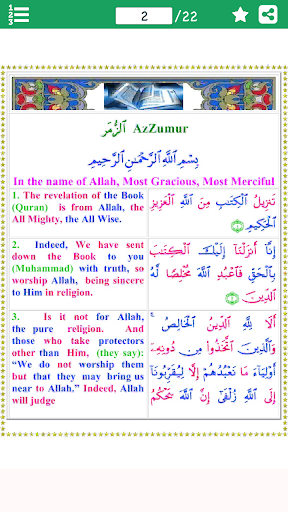 1
2
3
2 /22
ٱلزُّمَر AzZumur
بِسْمِ ٱللَّهِ ٱلرَّحْمَٰنِ ٱلرَّحِيمِ
In the name of Allah, Most Gracious, Most Merciful
1. The revelation of the Book
(Quran) is from Allah, the
All Mighty, the All Wise.
تَنزِيلُ ٱلْكِتَٰبِ مِنَ ٱللَّهِ ٱلْعَزِيزِ
ٱلْحَكِيمِ
2. Indeed, We have sent
down the Book to you
(Muhammad) with truth, so
worship Allah, being sincere
to Him in religion.
إِنَّآ أَنزَلْنَآ إِلَيْكَ ٱلْكِتَٰبَ
بِٱلْحَقِّ فَٱعْبُدِ ٱللَّهَ مُخْلِصًا لَّهُ
ٱلدِّينَ
3. Is it not for Allah,
the pure religion. And
those who take protectors
other than Him, (they say):
“We do not worship them
but that they may bring us
near to Allah.” Indeed, Allah
will judge
أَلَا لِلَّهِ ٱلدِّينُ ٱلْخَالِصُ
وَٱلَّذِينَ ٱتَّخَذُوا۟ مِن دُونِهِۦٓ
أَوْلِيَآءَ مَا نَعْبُدُهُمْ إِلَّا لِيُقَرِّبُونَآ
إِلَى ٱللَّهِ زُلْفَىٰٓ إِنَّ ٱللَّهَ يَحْكُمُ